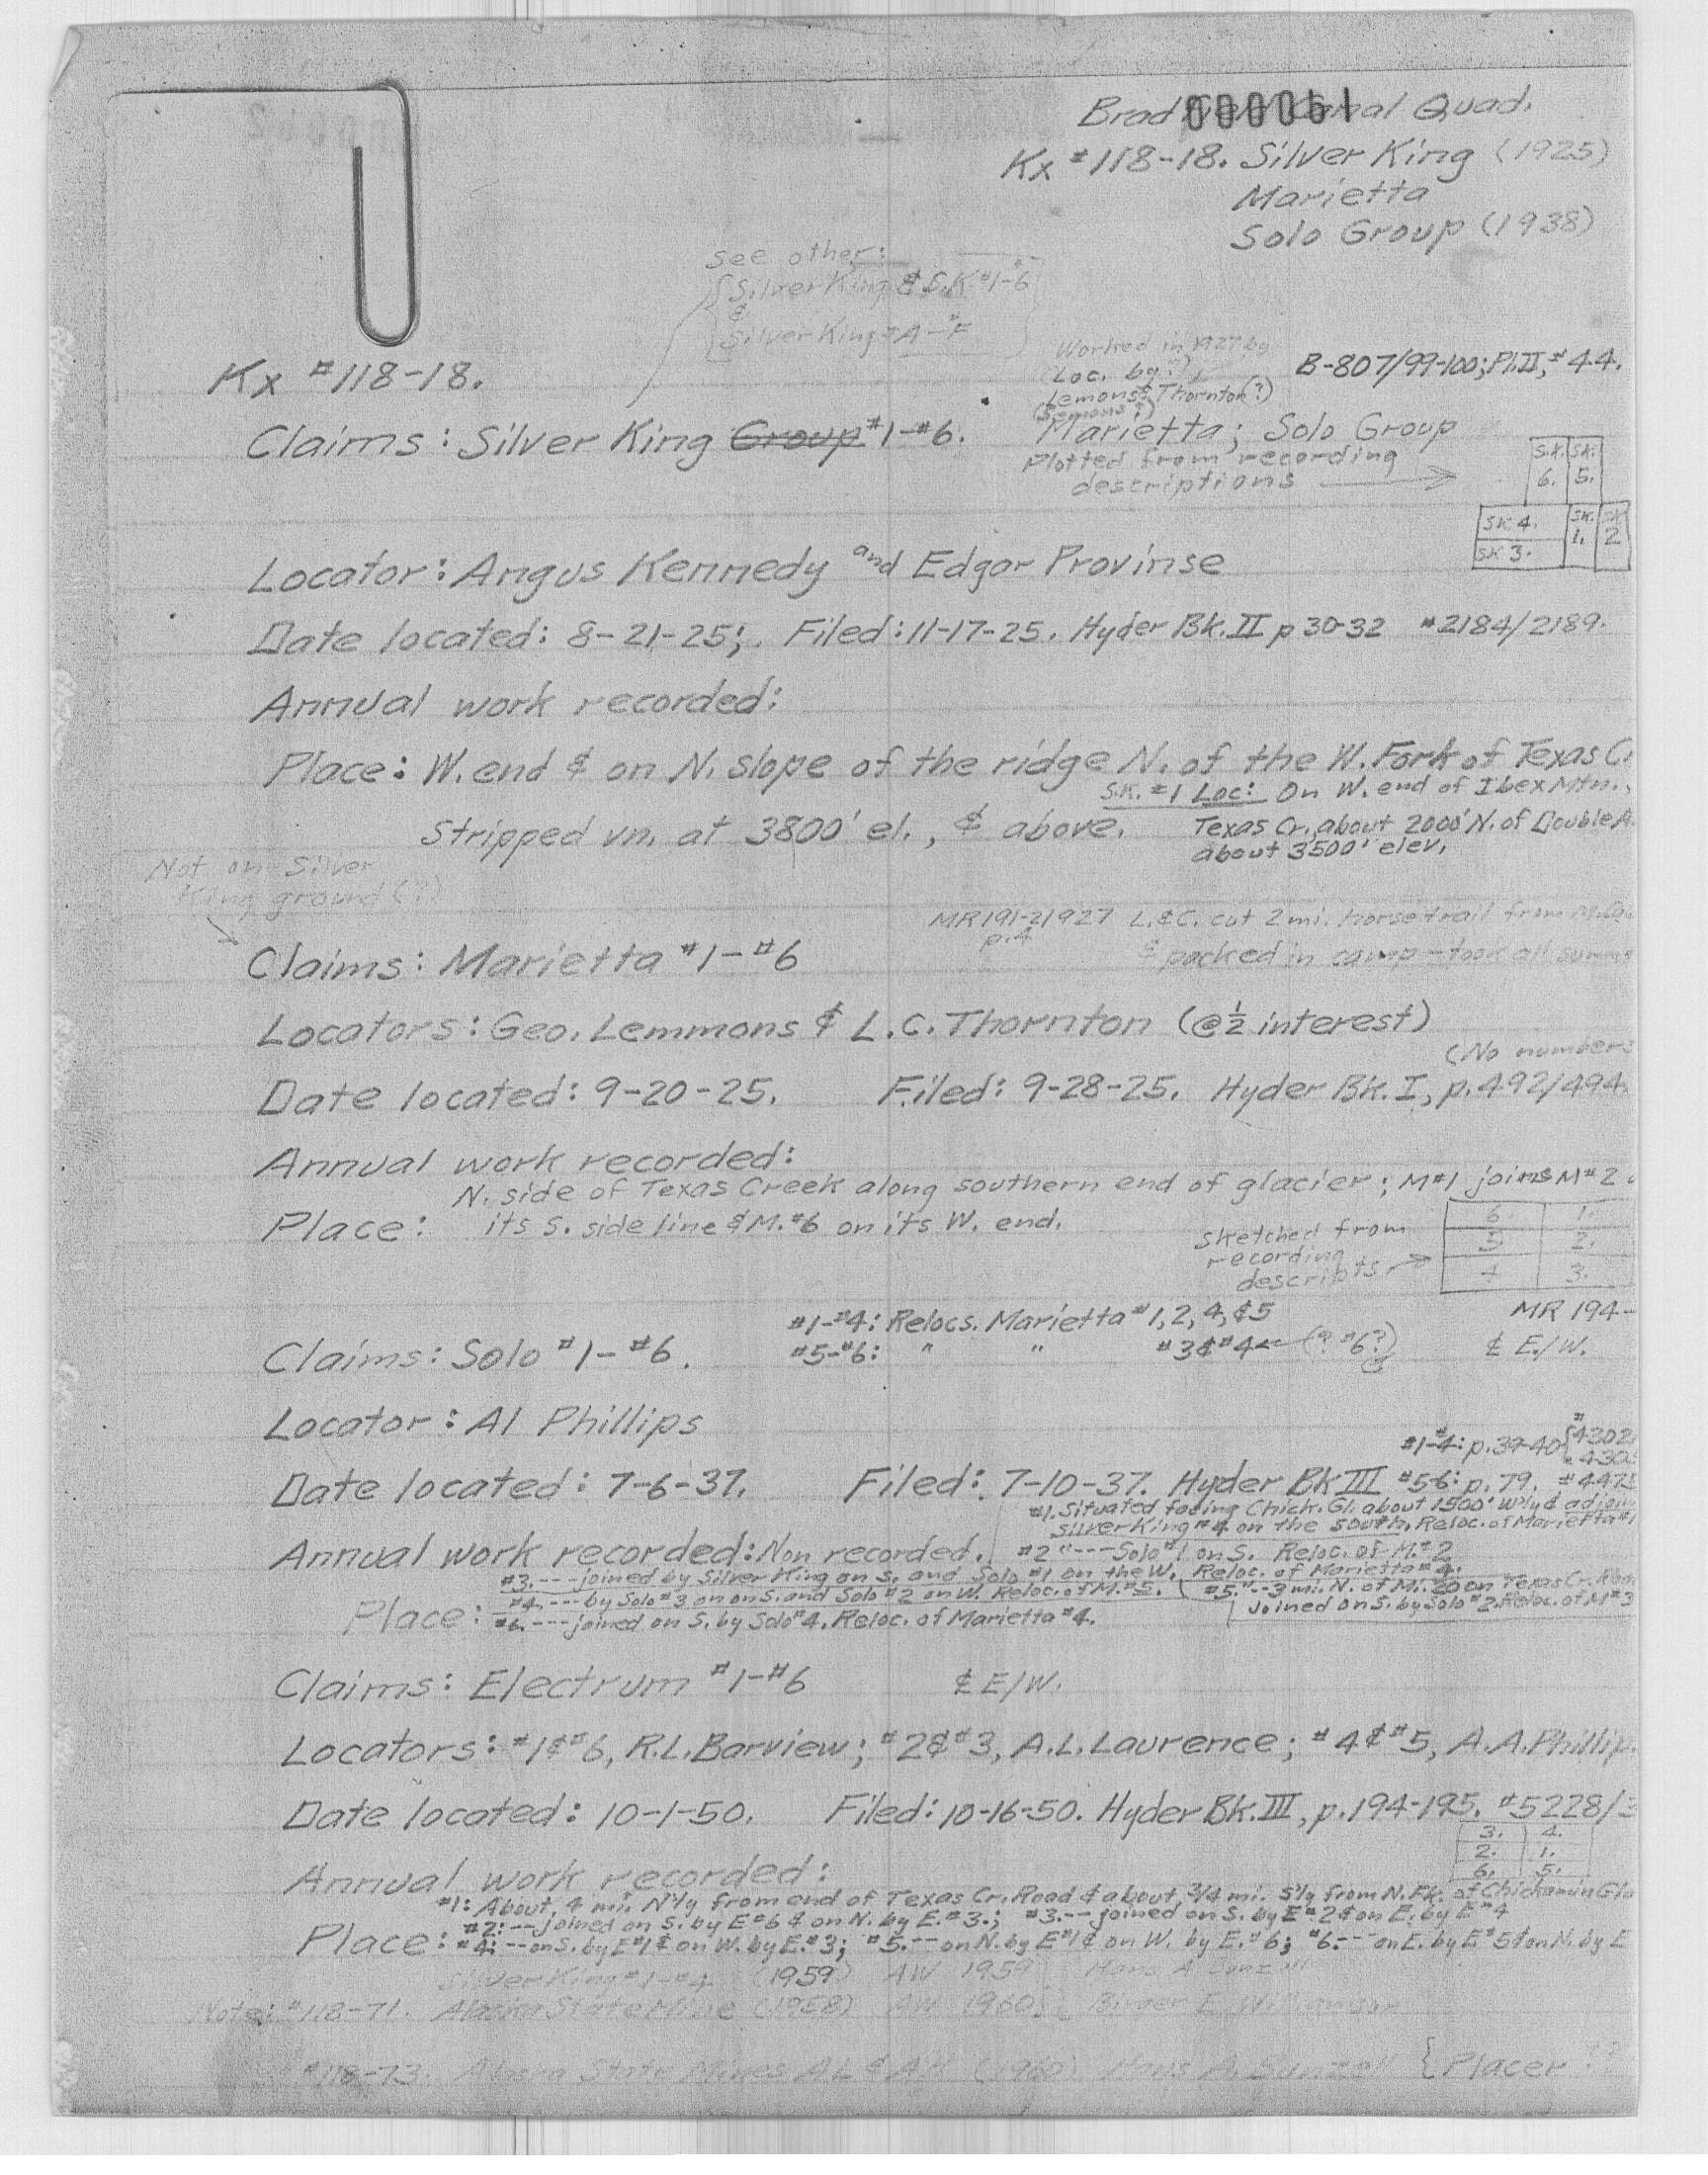 000061
Canal Quad.
Kx #118-18. Silver King (1925)
Marietta
Solo Group (1938)
See other:
Silver King & S.K. #1-6
&
Silver King A-F
Worked in 1927 by
(Loc. by?)
Lemons & Thornton (?)
(Semons?)
B-807/99-100; Pl. II, #44.
Kx #118-18.
Claims: Silver King Group #1-#6. Marietta; Solo Group
Plotted from recording
descriptions
S.K. 6. S.K. 5.
SK 4. SK. 1. SK 2
SK 3.
Locator: Angus Kennedy and Edgar Provinse
Date located: 8-21-25; Filed: 11-17-25. Hyder Bk. II p 30-32 #2184/2189.
Annual work recorded:
Place: W. end & on N. slope of the ridge N. of the W. Fork of Texas Cr
S.K. #1 Loc: On W. end of Ibex Mtn.,
Stripped vn. at 3800' el., & above. Texas Cr. about 2000' N. of Double A
about 3500' elev.
Not on Silver
King ground (?)
MR 191-2 1927 L. & C. cut 2 mi. horse trail from
p. 4 & packed in camp - took all
Claims: Marietta #1-#6
Locators: Geo. Lemmons & L.C. Thornton (@ ½ interest)
(No numbers
Date located: 9-20-25. Filed: 9-28-25. Hyder Bk. I, p. 492/494
Annual work recorded:
N. side of Texas Creek along southern end of glacier; M#1 joins M#2
Place: its S. side line & M. #6 on its W. end.
Sketched from
recording
descripts
6. 1.
5 2.
4 3.
#1-#4: Relocs. Marietta #1, 2, 4, & 5 MR 194-
Claims: Solo #1-#6. #5-#6: " " #3 & #4 (? #6?) & E./W.
Locator: Al Phillips
#1-4: p. 39-40 #4302
Date located: 7-6-37. Filed: 7-10-37. Hyder Bk III #5-6: p. 79.
#1. Situated facing Chick. Gl. about 1500' W'ly & adjoin
Silver King #4 on the south. Reloc. of Marietta #1
Annual work recorded: Non recorded. #2 "---- Solo #1 on S. Reloc. of M. #2
#3. ---- joined by Silver King on S. and Solo #1 on the W. Reloc. of Marietta #4.
#4. --- by Solo #3 on on S. and Solo #2 on W. Reloc. of M. #5. #5. "--3 mi. N. of Mi. 20 on Texas Cr. Road
Joined on S. by Solo #2. Reloc. of M #3
Place: #6. ---- joined on S. by Solo #4. Reloc. of Marietta #4.
Claims: Electrum #1-#6 & E/W.
Locators: #1 & #6, R.L. Barview; #2 & #3, A.L. Laurence; #4 & #5, A.A. Phillip
Date located: 10-1-50. Filed: 10-16-50. Hyder Bk. III, p. 194-195. #5228/3
3. 4.
2. 1.
6. 5.
Annual work recorded:
#1: About 4 mi. N'ly from end of Texas Cr. Road & about 3/4 mi. S'ly from N. Fk. of Chickamin Gla
#2: -- joined on S. by E #6 & on N. by E. #3.; #3. -- joined on S. by E #2 & on E. by E #4
Place: #4: -- on S. by E #1 & on W. by E. #3; #5. -- on N. by E #1 & on W. by E. #6; #6. --- on E. by E #5 & on N. by E
Silver King #1-#4 (1959) AW 1959 Hans A
Note: #118-71. Alaska State Mine (1958) AW 1960 Birger E.
#118-73. Alaska State Mines AL & AH (1960) Hans A. Bunzell { Placer ??